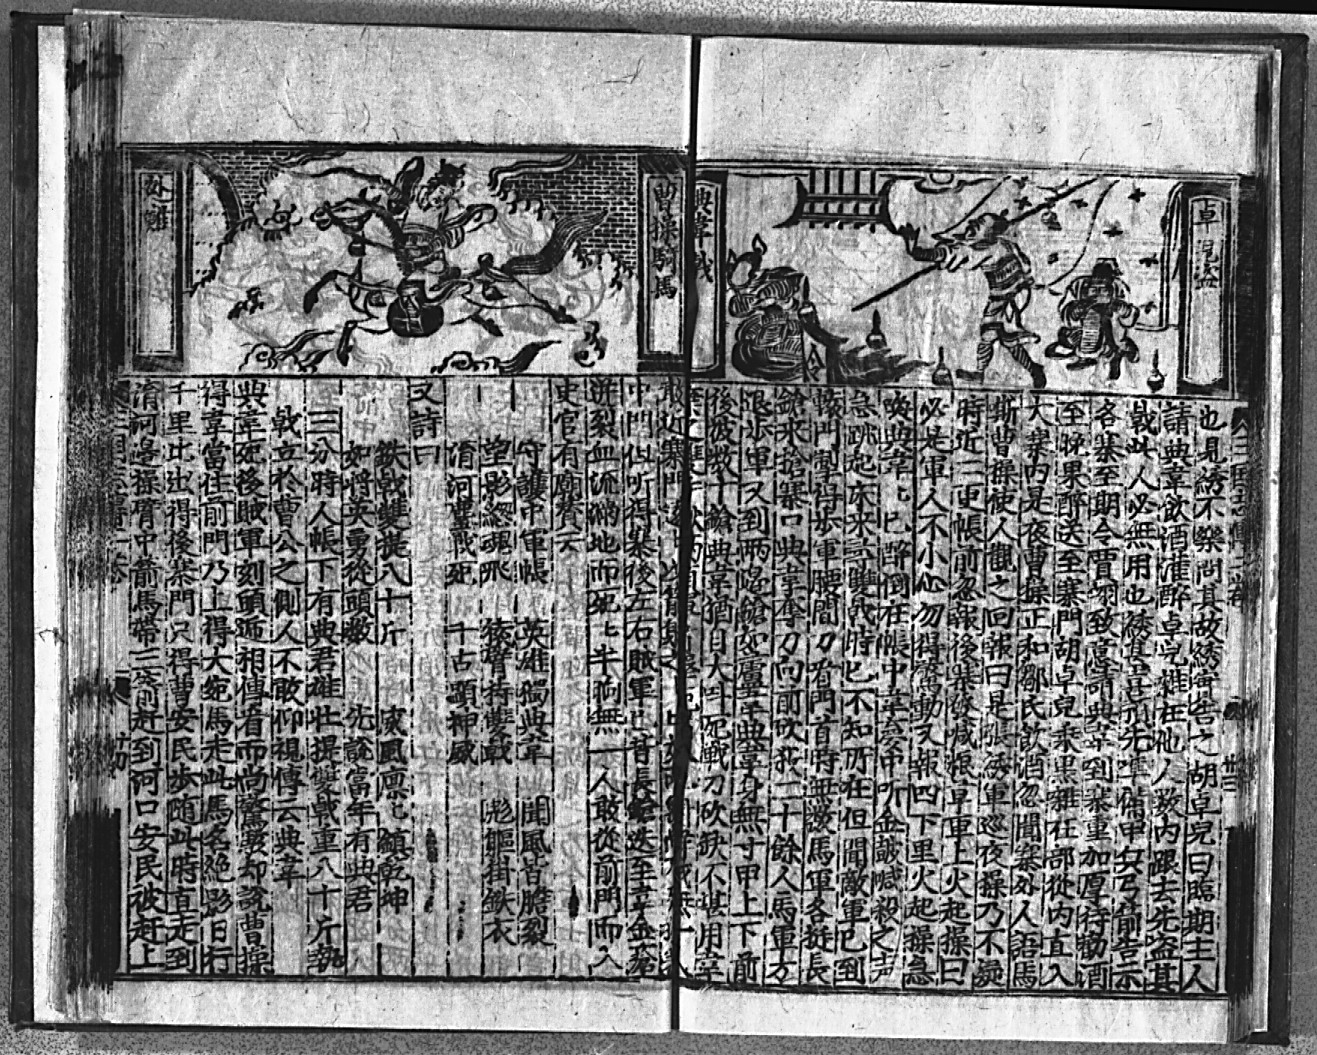 卓児盜
典韋戟
也見綉不樂問其故綉密告之胡卓児曰臨期主人
請典韋飲酒灌醉卓児雜在他人数內跟去先盗其
戟此人必無用也綉甚喜先準俻甲兵弓箭告示
各寨至期令賈詡致意請典韋到寨重加厚待勧酒
至晚果醉送至寨門胡卓児乗黒雜在部從內直入
大寨內是夜曹操正和鄒氏飲酒忽聞寨外人語馬
嘶曹操使人觀之回報曰是張綉軍巡夜操乃不疑
時近二更帳前忽報後寨發喊報草車上火起操曰
必是軍人不小心勿得驚動又報四下里火起操急
喚典韋韋已醉倒在帳中韋夢中听金鼓喊殺之声
急跳起床來尋雙戟時已不知所在但聞敵軍已到
轅門掣得步軍腰間刀看門首時無數馬軍各挺長
鎗來搶寨口典韋奪刀向前砍死二十餘人馬軍方
退步軍又到兩邉鎗如蘆葦典韋身無寸甲上下前
後彼数十鎗典韋猶自大呌死戰刀砍缺不堪用韋
曹操騎馬
中門但听得寨後左右賊軍已背長鎗迭至韋金瘡
迸裂血流滿地而死七半晌無一人敢從前門而入
史官有廟賛云
守護中軍帳 英雄獨典韋 聞風皆膽裂
望影緫魂飛 猿臂持雙戟 彪軀掛鉄衣
淯河䲧戰死 千古顕神威
又詩曰
鉄戟雙提八十斤 威風凛七鎮乾坤
如將英勇從頭数 先說當年有典君
三分時人帳下有典君雄壮提雙戟重八十斤勢
戟立於曹公之側人不敢仰視傳云典韋
典韋死後賊軍刻頭逓相傳看而尚驚駭却說曹操
得韋當住前門乃上得大宛馬走此馬名絶影日行
千里比出得後寨門只得曹安民步随此時直走到
淯河邉操臂中箭馬帶三箭赶到河口安民被赶上